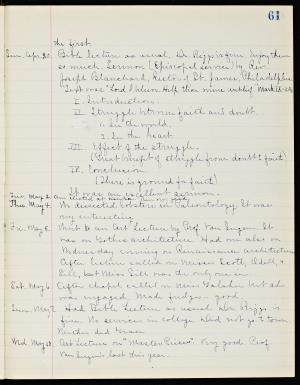 61
the first.
Sun. Apr. 30. Bible Lecture as usual. Dr. Riggs is fine. Enjoy them
so much. Sermon (Episcopal service) by Rev.
Joseph Blanchard, Rector of St. James, Philadelphia
Text was "Lord I believe. Help thou mine unbelief." Mark
I. Introduction.
II. Struggle between faith and doubt.
1. In the world.
2. In the heart
III. Effect of the struggle.
(Great benefit of struggle from doubt to faith)
IV. Conclusion.
(There is ground for faith)
It was an excellent sermon.
Tue. May 2.
Thu. May 4. We dissected lobsters in Paleontology. It was
very interesting.
Fri. May 5. Went to an Art Lecture by Prof. Van Ingen. It was
on Gothic architecture. Had one also on
Wednesday evening on Renaissance architecture
After lecture called on Misses Scott, Odell, &
Gill, but Miss Gill was the only one in.
Sat. May 6. After chapel called on Miss but she
was engaged. Made fudge - good.
Sun. May 7. Had Bible Lecture as usual. Dr. Riggs is
fine. No services in college. Did not go to town
Neither did Grace.
Wed. May 10. Art Lecture on "Master Pieces". Very good. Prof.
Van Ingen's last this year.